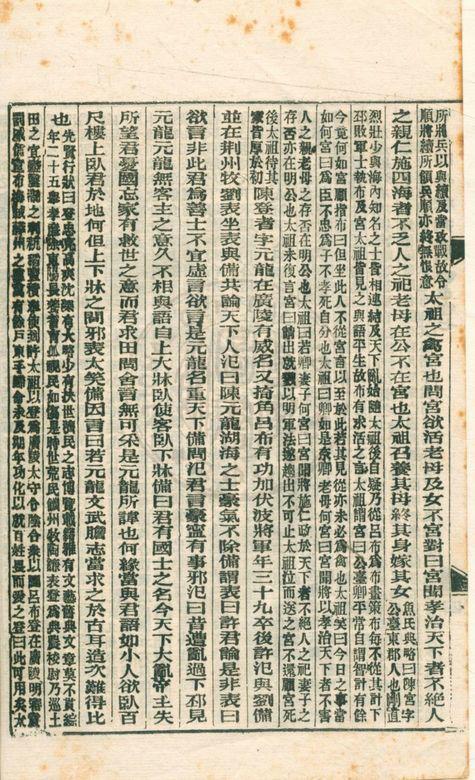 所將兵以與續及當攻戰故令
順將續所領兵順亦終無恨意
太祖之禽宮也問宮欲活老母及女不宮對曰宮聞孝治天下者不絕人
之親仁施四海者不乏人之祀老母在公不在宮也太祖召養其母終其身嫁其女
魚氏典略曰陳宮字
公臺東郡人也剛直
烈壯少與海內知名之士皆相連結及天下亂始隨太祖後自疑乃從呂布為布畫策布每不從其計下
邳敗軍士執布及宮太祖皆見之與語平生故布有求活之言太祖謂宮曰公臺卿平常自謂智計有餘
今竟何如宮顧指布曰但坐此人不從宮言以至於此若其見從亦未必為禽也太祖笑曰今日之事當
如何宮曰為臣不忠為子不孝死自分也太祖曰卿如是奈卿老母何宮曰宮聞將以孝治天下者不害
人之親老母之存否在明公也太祖曰若卿妻子何宮曰宮聞將施仁政於天下者不絕人之祀妻子之
存否亦在明公也太祖未復言宮曰請出就戮以明軍法遂趨出不可止太祖泣而送之宮不還顧宮死
後太祖待其
家皆厚於初
陳登者字元龍在廣陵有威名又掎角呂布有功加伏波將軍年三十九卒後許汜與劉備
並在荊州牧劉表坐表與備共論天下人汜曰陳元龍湖海之士豪氣不除備謂表曰許君論是非表曰
欲言非此君爲善士不宜虛言欲言是元龍名重天下備問汜君言豪寧有事邪汜曰昔遭亂過下邳見
元龍元龍無客主之意久不相與語自上大牀臥使客臥下牀備曰君有國士之名今天下大亂帝主失
所望君憂國忘家有救世之意而君求田問舍言無可采是元龍所諱也何緣當與君語如小人欲臥百
尺樓上臥君於地何但上下牀之間邪表大笑備因言曰若元龍文武膽志當求之於古耳造次難得比
也
先賢行狀曰登忠亮高爽沈深有大略少有扶世濟民之志博覽載籍雅有文藝舊典文章莫不貫綜
年二十五舉孝廉除東陽長養耆育孤視民如傷是時世荒民飢州牧陶謙表登為典農校尉乃巡土
田之宜盡鑿溉之利秔稻豐積奉使到許太祖以登為廣陵太守令陰合衆以圖呂布登在廣陵明審賞
罰威信宣布海賊薛州之羣萬有餘戶束手歸命未及期年功化以就百姓畏而愛之登曰此可用矣太